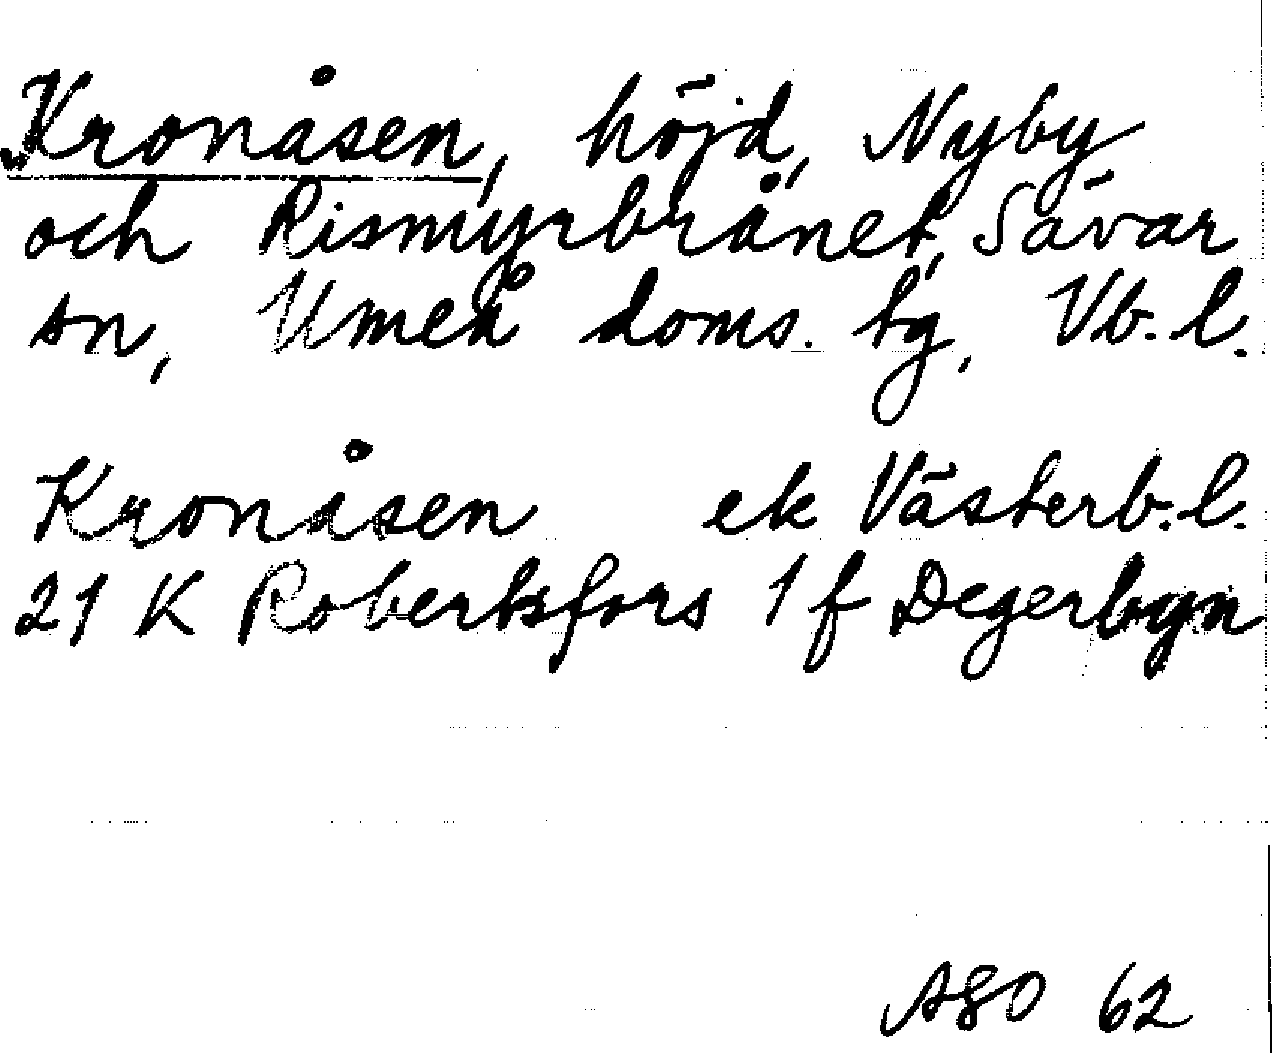 Kronåsen, höjd, Nyby
och Rismyrbränet, Sävar
sn, Umeå doms. tg, Vb. l.
Kronåsen ek Västerb. l.
21 K Robertsfors 1 f Degerbyn
ASO 62